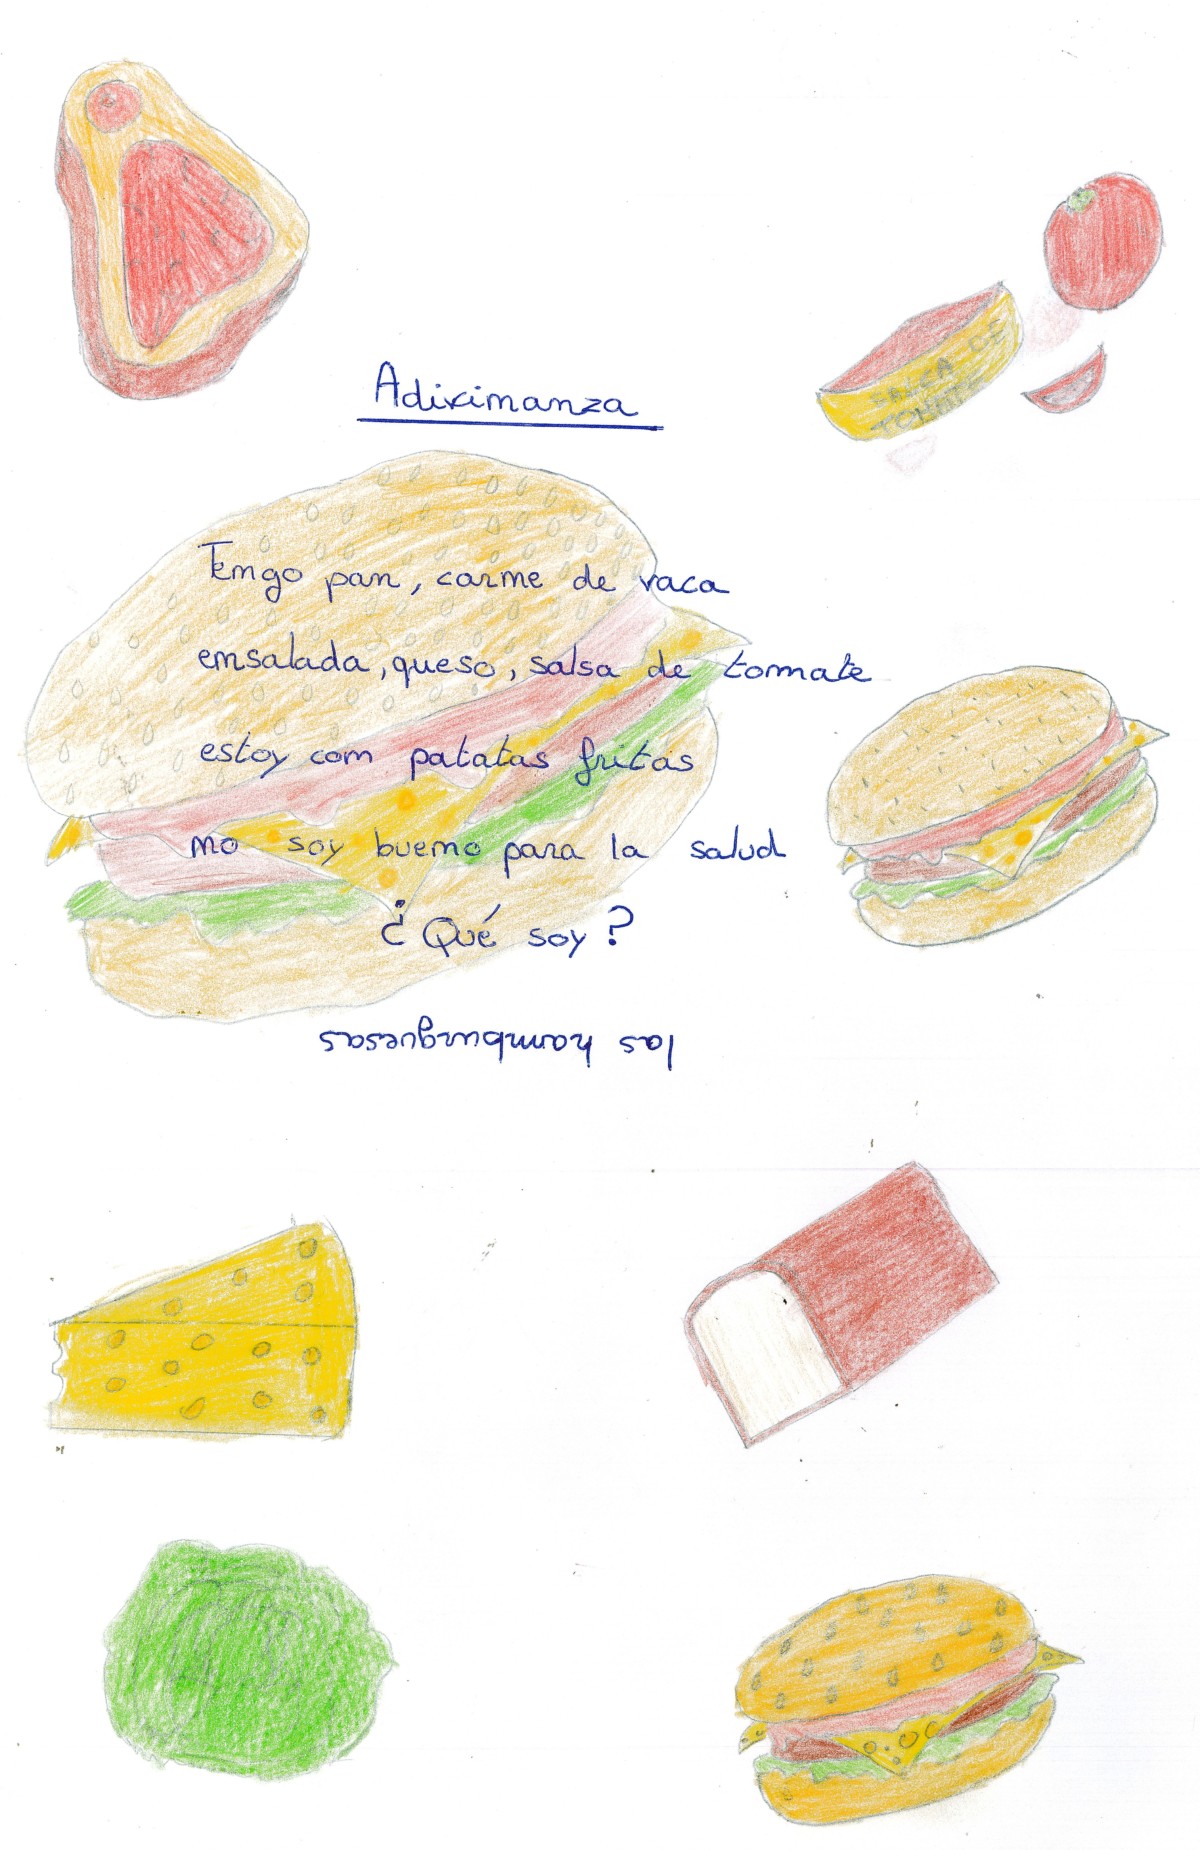 Adivinanza
SALSA DE
TOMATE
Tengo pan, carne de vaca
ensalada, queso, salsa de tomate
estoy com patatas fritas
no soy bueno para la salud
¿Qué soy?
las hamburguesas